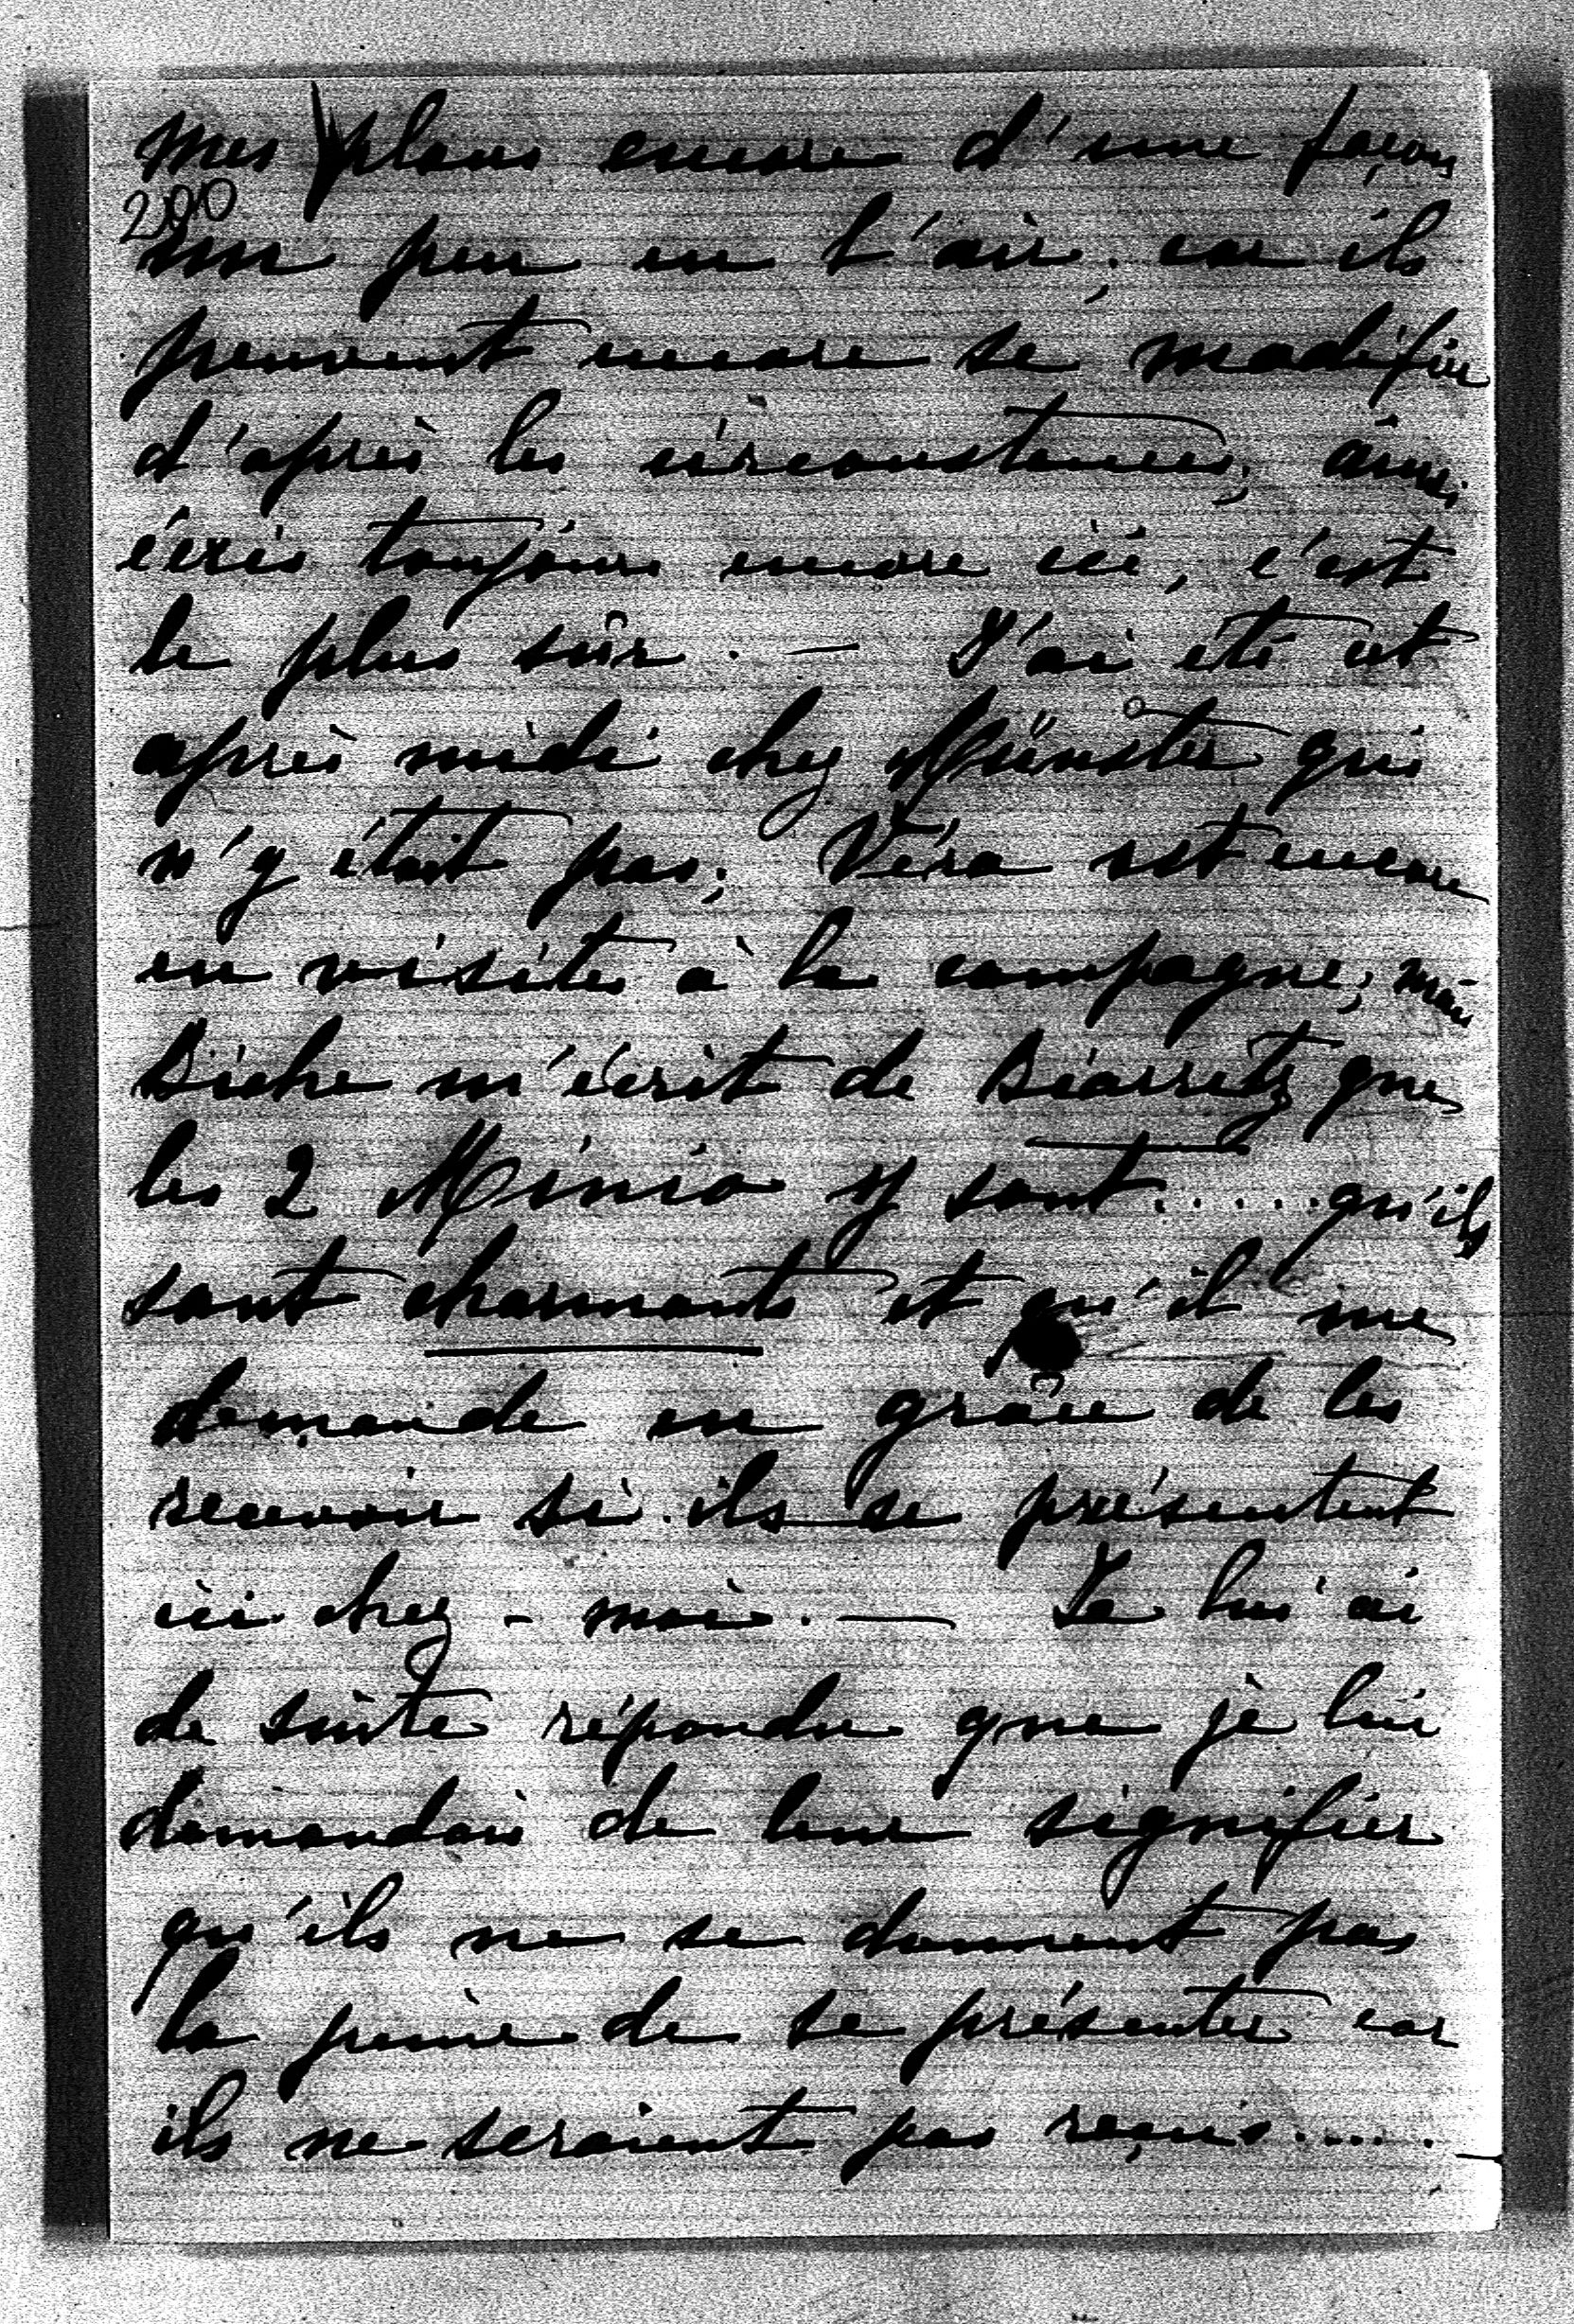 mes plans encore d'une façon
200
un peu en l'air, car ils
peuvent encore se modifier
d'après les circonstances; ainsi
écris toujours encore ici, c'est
le plus sûr. — J'ai été cet
après midi chez Münster qui
n'y était pas; Véra est encore
en visites à la campagne; mais
Biche m'écrit de Biarritz que
les 2 Minio y sont..... qu'ils
sont charmants et qu'il me
demande en grâce de les
recevoir si ils se présentent
ici chez-moi. — Je lui ai
de suite répondu que je lui
demandais de leur signifier
qu'ils ne se donnent pas
la peine de se présenter car
ils ne seraient pas reçus.....